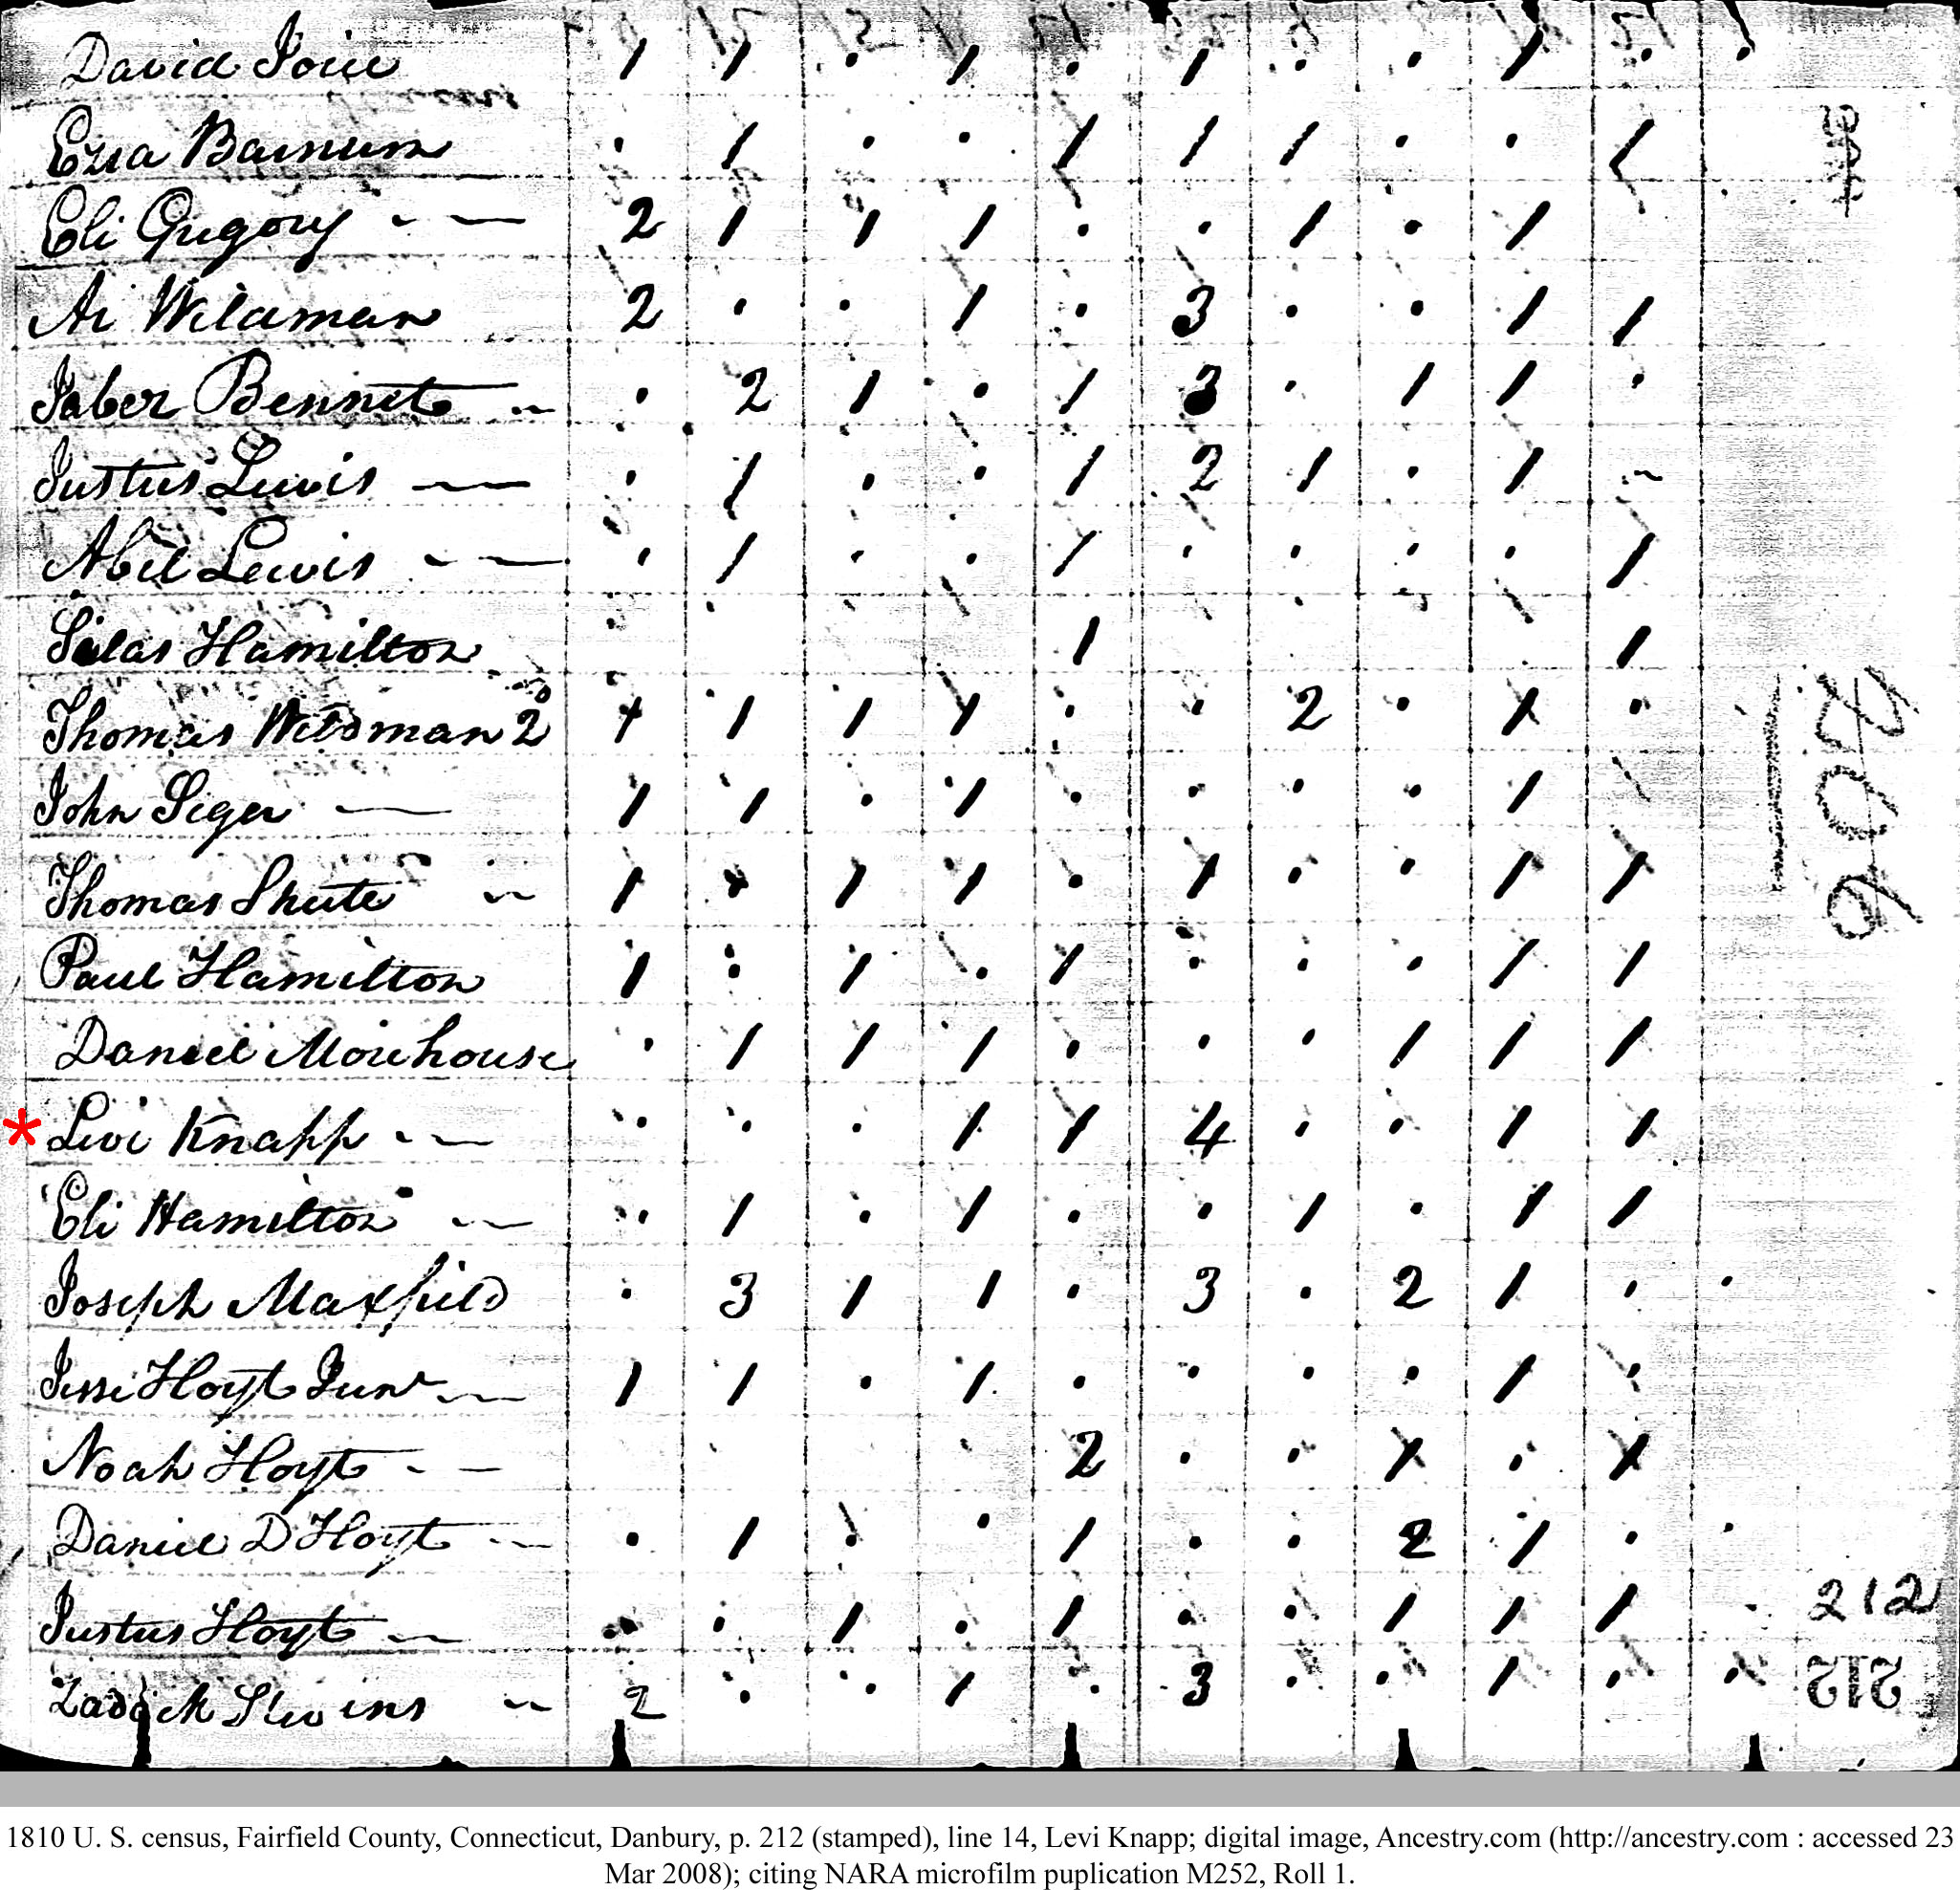 David Foice 1 1 . 1 . 1 . . 1 . .
Ezra Barnum . 1 . . 1 1 1 . . 1
Eli Gregory - — 2 1 1 1 . . 1 . 1
Ai Wildman 2 . . 1 . 3 . . 1 1
Jaber Bennet ~ . 2 1 . 1 3 . 1 1 .
Justus Lewis — . 1 . . 1 2 1 . 1 ~
Abel Lewis - — . 1 . . 1 . . . . 1
Silas Hamilton 1 1
Thomas Wildman 2d 1 1 1 1 . . 2 . 1 .
John Seger — 1 1 . 1 . . . . 1
Thomas Shute ~ 1 1 1 1 . 1 . . 1 1
Paul Hamilton 1 . 1 . 1 . . . 1 1
Daniel Morehouse . 1 1 1 . . . 1 1 1
* Levi Knapp - — . . . 1 1 4 . . 1 1
Eli Hamilton — . 1 . 1 . . 1 . 1 1
Joseph Maxfield . 3 1 1 . 3 . 2 1 . .
Jesse Hoyt Junr — 1 1 . 1 . . . . 1 .
Noah Hoyt - — 2 . . 1 . 1
Daniel D Hoyt — . 1 . . 1 . . 2 1 . .
Justus Hoyt — . . 1 . 1 . . 1 1 1
212
Zadock Stevens ~ 2 . . 1 . 3 . . 1 . .
212
1810 U. S. census, Fairfield County, Connecticut, Danbury, p. 212 (stamped), line 14, Levi Knapp; digital image, Ancestry.com (http://ancestry.com : accessed 23
Mar 2008); citing NARA microfilm puplication M252, Roll 1.